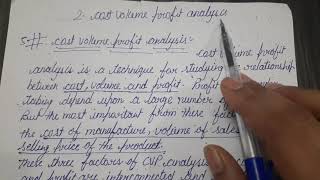 2. cost volume profit analysis
5.# cost volume profit analysis:-
cost volume profit
analysis is a technique for studying the relationship
between cost, volume and profit. Profit
depend upon a large number of
But the most important from these fac
the cost of manufacture, volume of sales
selling price of the product.
These three factors of CVP analysis
and profit are interconnected and